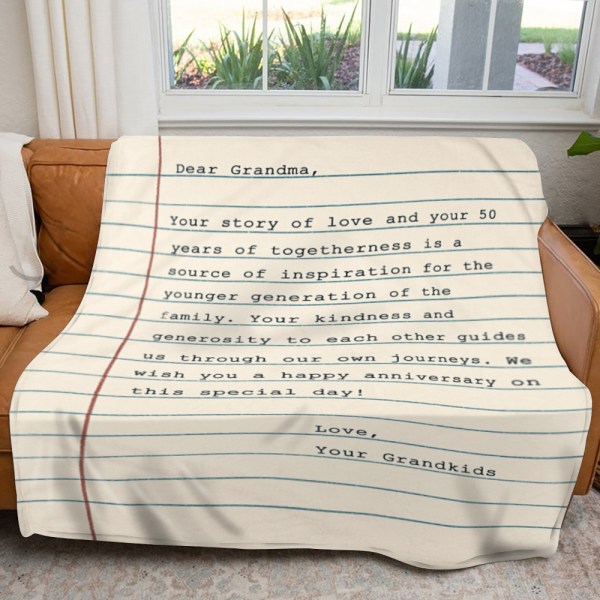 Dear Grandma,
Your story of love and your 50
years of togetherness is a
source of inspiration for the
younger generation of the
family. Your kindness and
generosity to each other guides
us through our own journeys. We
wish you a happy anniversary on
this special day!
Love,
Your Grandkids